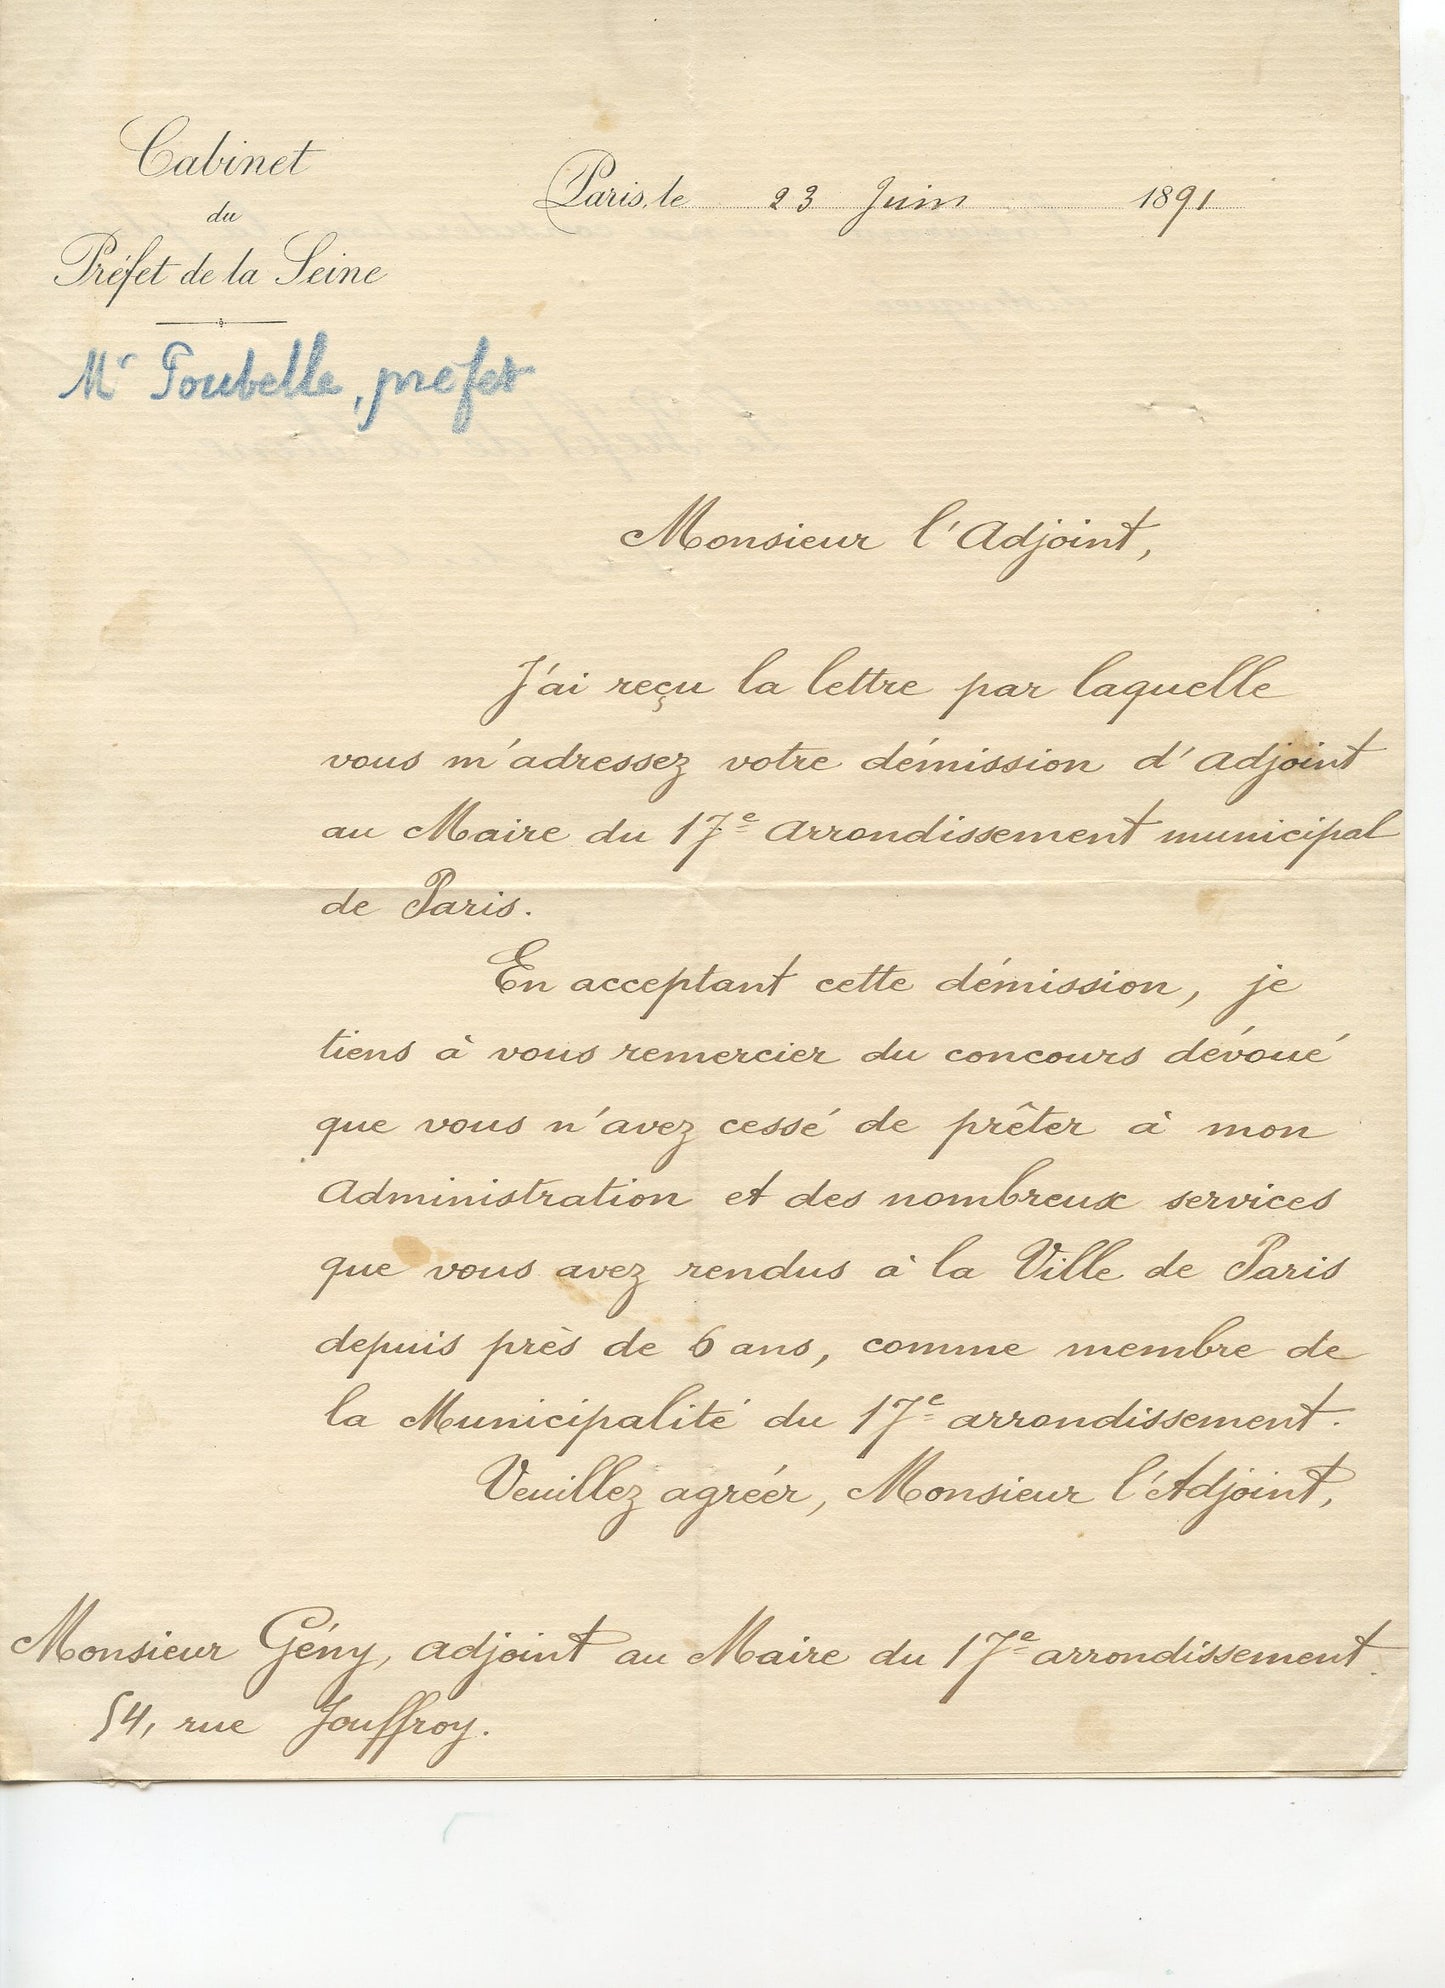 Cabinet
du
Préfet de la Seine
Paris, le 23 Juin 1891
Mr Poubelle, préfet
Monsieur l'Adjoint,
J'ai reçu la lettre par laquelle
vous m'adressez votre démission d'Adjoint
au Maire du 17e Arrondissement municipal
de Paris.
En acceptant cette démission, je
tiens à vous remercier du concours dévoué
que vous n'avez cessé de prêter à mon
Administration et des nombreux services
que vous avez rendus à la Ville de Paris
depuis près de 6 ans, comme membre de
la Municipalité du 17e arrondissement.
Veuillez agréer, Monsieur l'Adjoint,
Monsieur Gény, adjoint au Maire du 17e arrondissement.
54, rue Jouffroy.